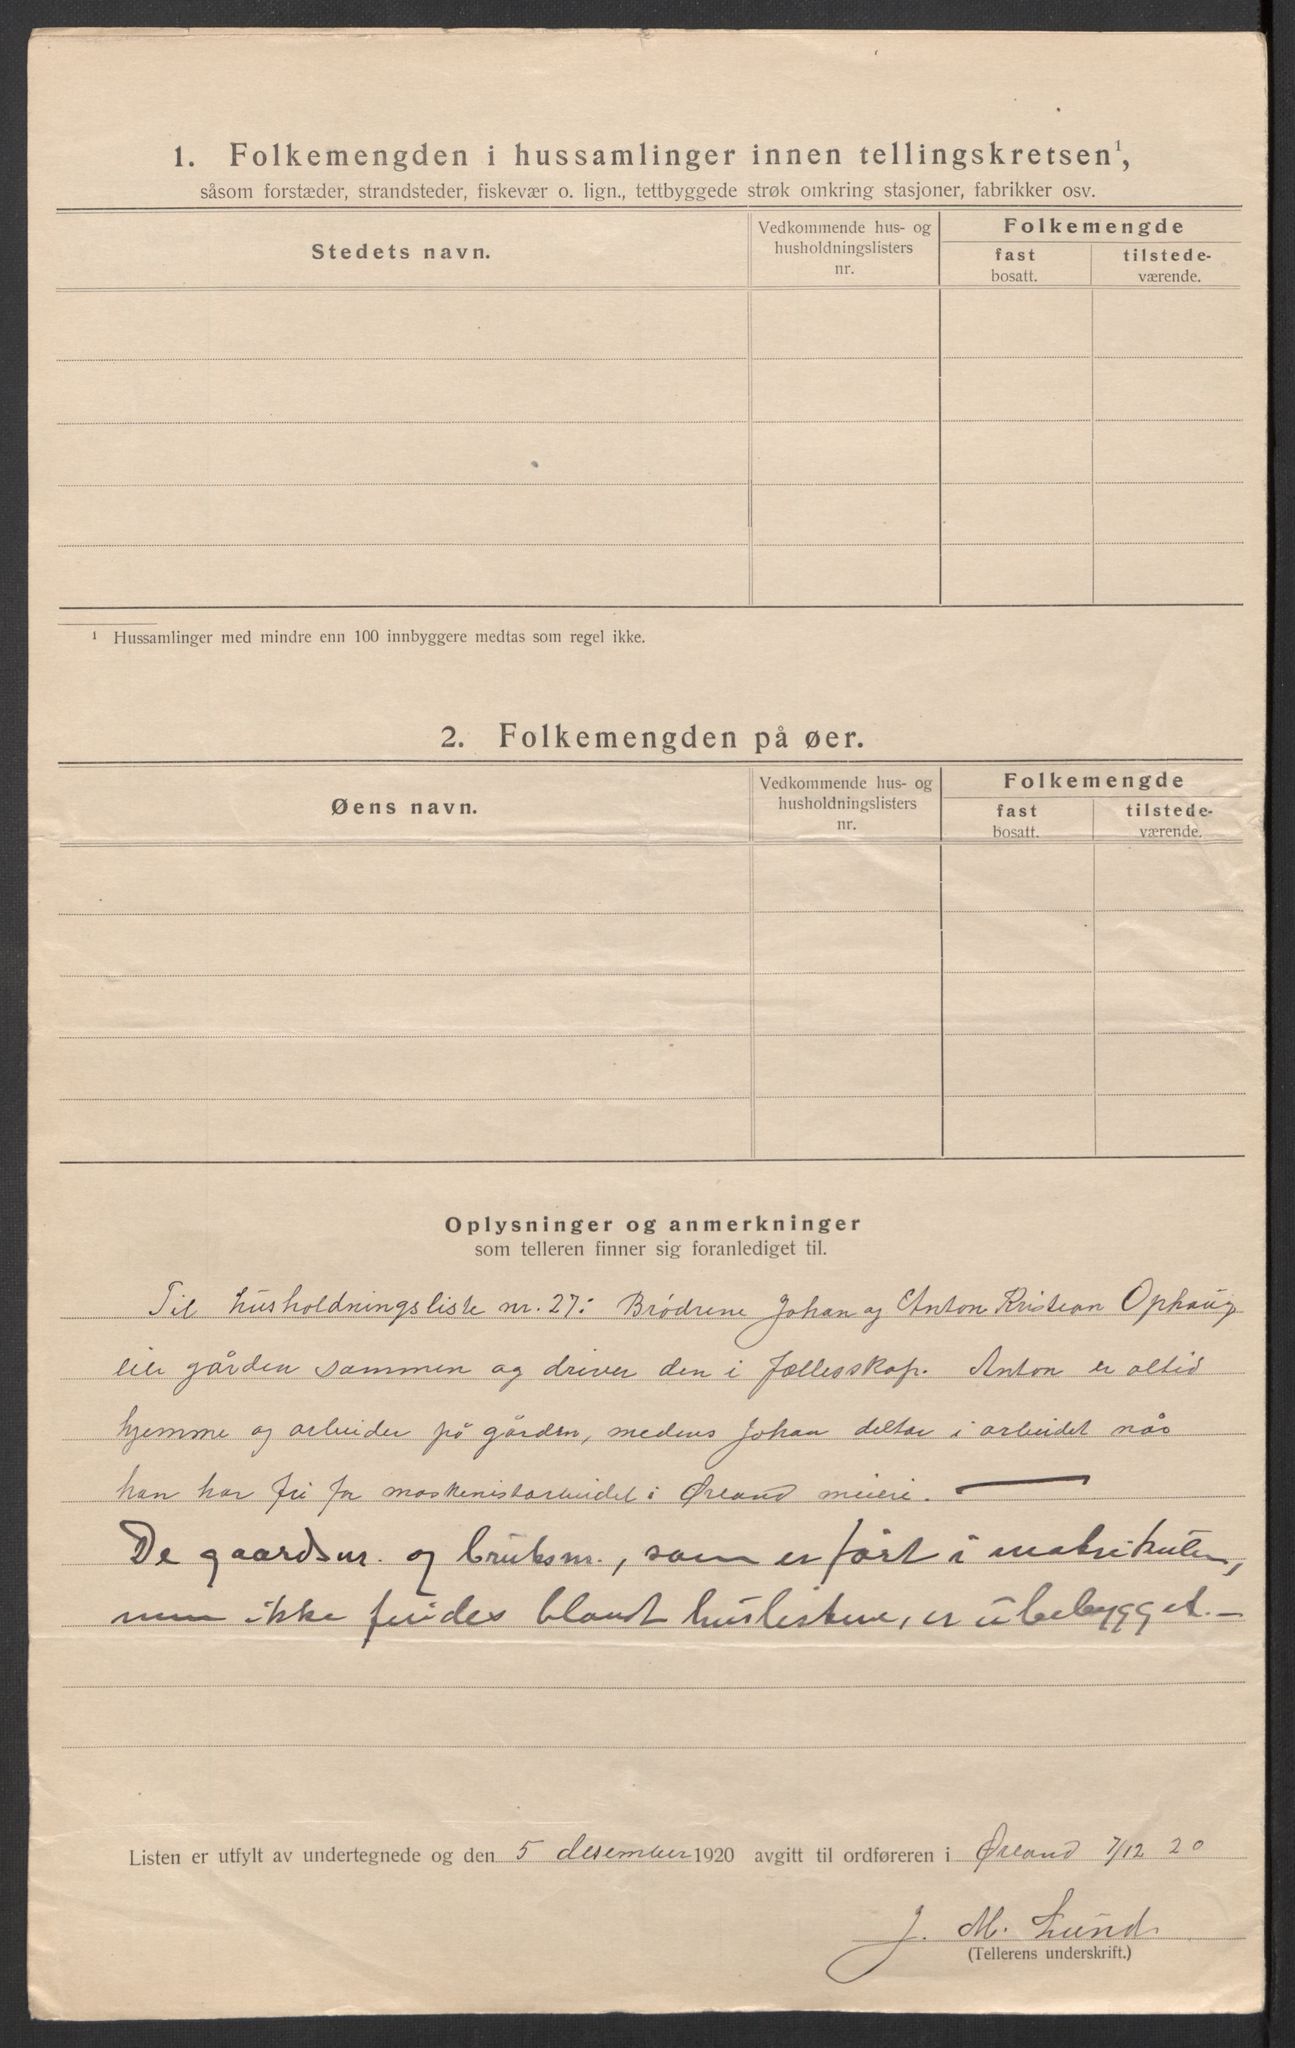 1. Folkemengden i hussamlinger innen tellingskretsen¹,
såsom forstæder, strandsteder, fiskevær o. lign., tettbyggede strøk omkring stasjoner, fabrikker osv.
Stedets navn.
Vedkommende hus- og
husholdningslisters
nr.
Folkemengde
fast
bosatt.
tilstede-
værende.
¹ Hussamlinger med mindre enn 100 innbyggere medtas som regel ikke.
2. Folkemengden på øer.
Øens navn.
Vedkommende hus- og
husholdningslisters
nr.
Folkemengde
fast
bosatt.
tilstede-
værende.
Oplysninger og anmerkninger
som telleren finner sig foranlediget til.
Til husholdningsliste nr. 27: Brödrene Johan og Anton Kristian Ophaug
eier gården sammen og driver den i fællesskap. Anton er altid
hjemme og arbeider på gården, medens Johan deltar i arbeidet når
han har fri for maskenistarbeidet i Ørland meieri. —
De gaardsnr. og bruksnr., som er ført i matrikulen,
men ikke findes blandt huslistene, er ubebygget. —
Listen er utfylt av undertegnede og den 5 desember 1920 avgitt til ordføreren i Ørland 7/12 20
J. M. Lund
(Tellerens underskrift.)